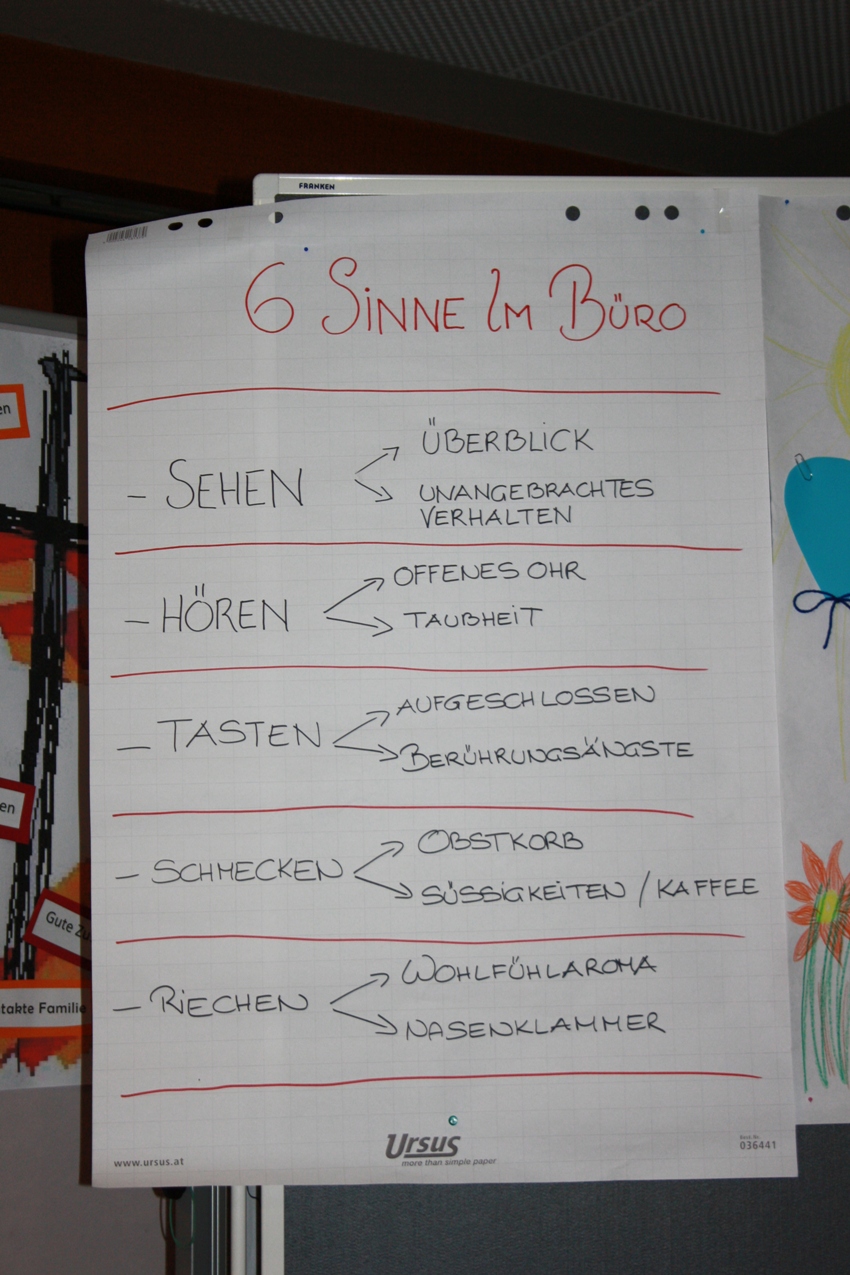 FRANKEN
6 SINNE IM BÜRO
– SEHEN
ÜBERBLICK
UNANGEBRACHTES
VERHALTEN
– HÖREN
OFFENES OHR
TAUBHEIT
– TASTEN
AUFGESCHLOSSEN
BERÜHRUNGSÄNGSTE
– SCHMECKEN
OBSTKORB
SÜSSIGKEITEN / KAFFEE
– RIECHEN
WOHLFÜHLAROMA
NASENKLAMMER
www.ursus.at
Ursus
more than simple paper
Best. Nr.
036441
en
en
Gute Zu
takte Familie